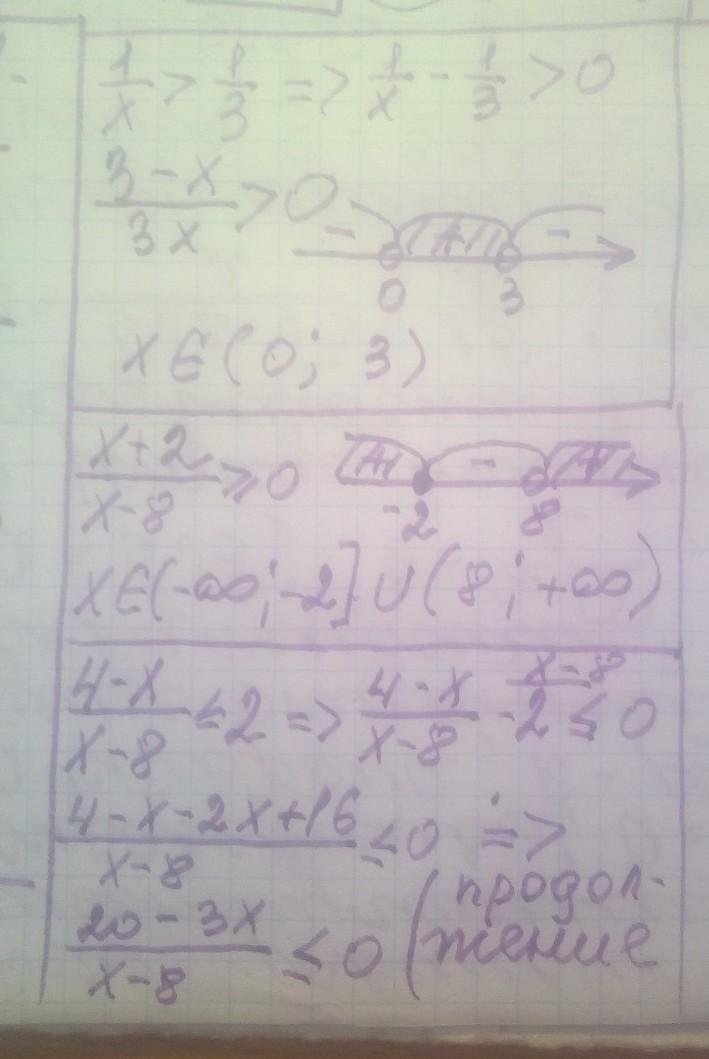 1/x > 1/3 => 1/x - 1/3 > 0
(3-x)/(3x) > 0
- + -
0 3
x∈(0; 3)
(x+2)/(x-8) ≥ 0
+ - +
-2 8
x∈(-∞; -2]∪(8; +∞)
(4-x)/(x-8) ≤ 2 => (4-x)/(x-8) - 2 ≤ 0
x-8
(4-x-2x+16)/(x-8) ≤ 0 =>
(20-3x)/(x-8) ≤ 0 (продол-
жение